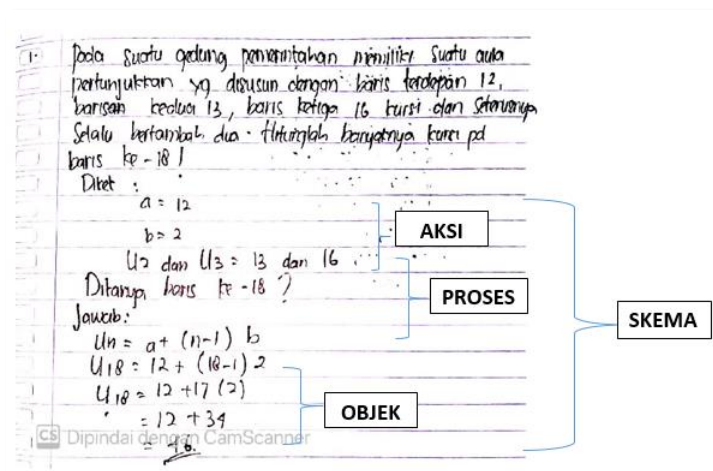 1. Pada suatu gedung pemerintahan memiliki suatu aula
pertunjukkan yg disusun dengan baris terdepan 12,
barisan kedua 13, baris ketiga 16 kursi dan seterusnya
Selalu bertambah dua. Hitunglah banyaknya kursi pd
baris ke-18!
Diket :
a = 12
b = 2
U2 dan U3 = 13 dan 16
Ditanya baris ke-18?
Jawab:
Un = a + (n-1) b
U18 = 12 + (18-1) 2
U18 = 12 + 17 (2)
= 12 + 34
= 46.
AKSI
PROSES
OBJEK
SKEMA
CS Dipindai dengan CamScanner